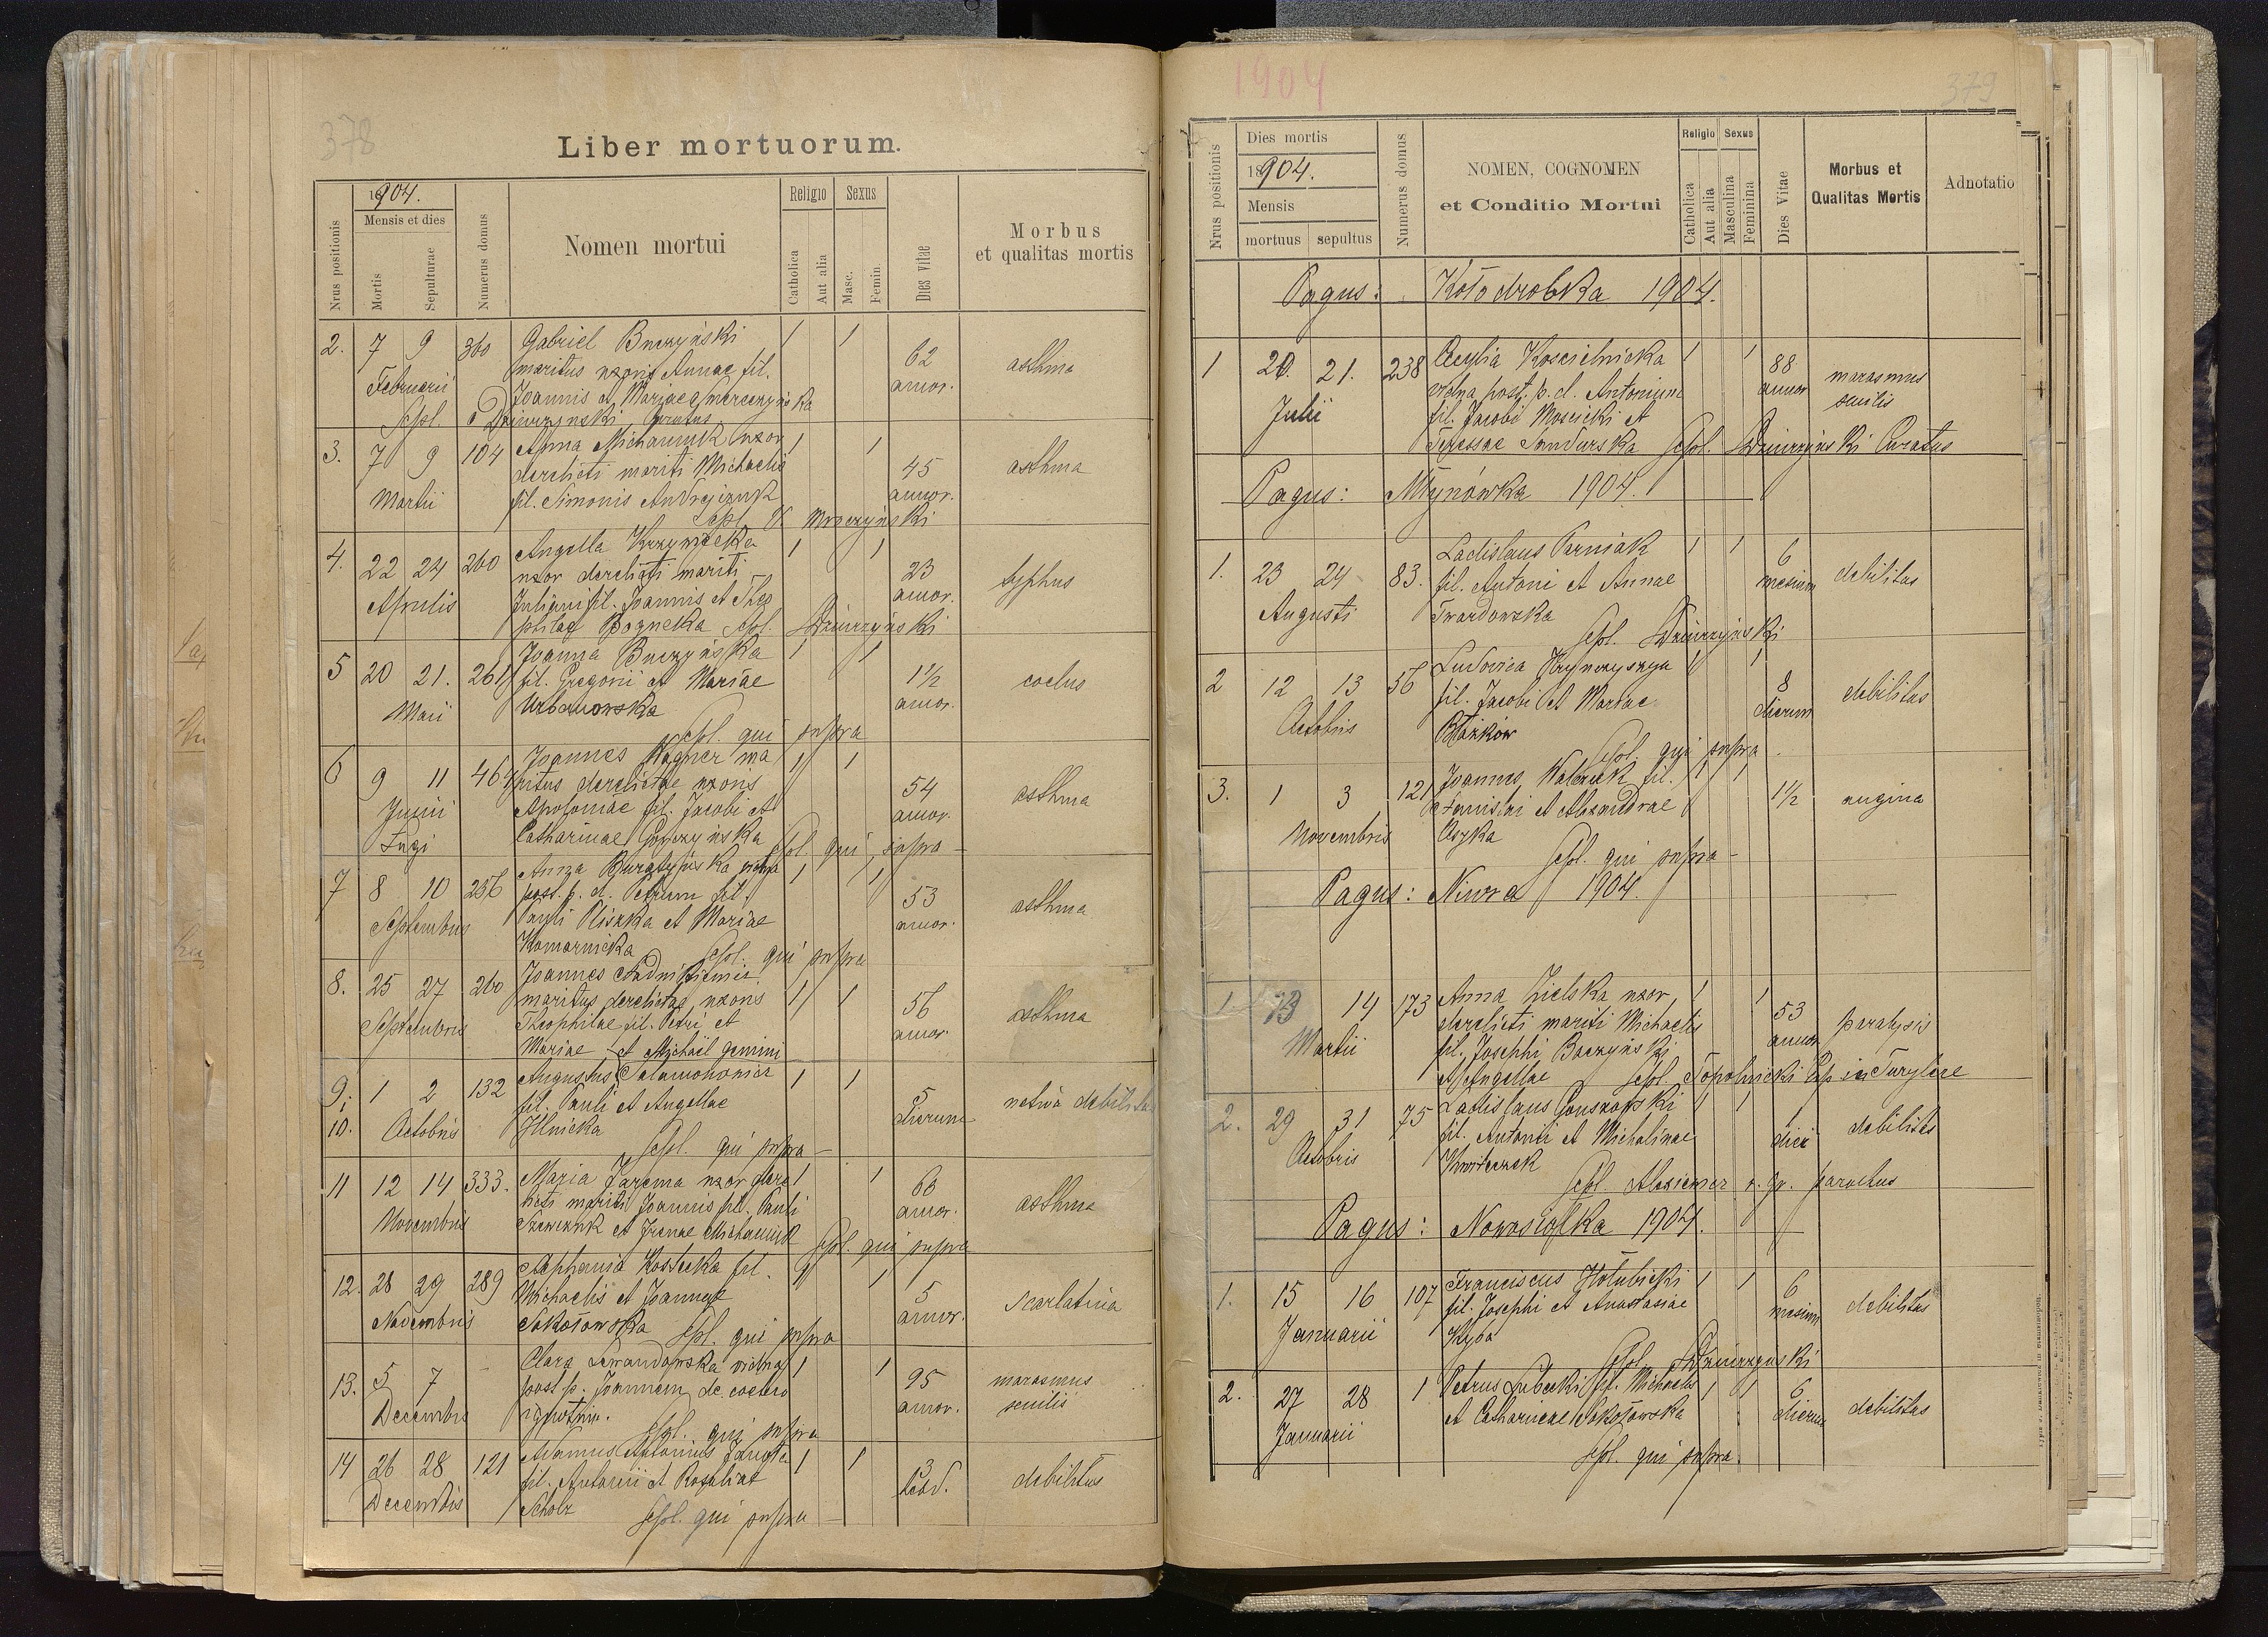 378
Liber mortuorum.
1904.
Mensis et dies
Nrus positionis
Mortis
Sepulturae
Numerus domus
Nomen mortui
Religio
Sexus
Catholica
Aut alia
Masc.
Femin.
Dies vitae
Morbus
et qualitas mortis
2. 7 9 360 Gabriel Buczyński 1 1 62 asthma
Februarii maritus uxoris Annae fil. annor.
Joannis et Mariae
Sepl. Dziurzynski Curatus
3. 7 9 104 Anna Michaniuk uxor 1 1 45 asthma
derelicti mariti Michaelis
Martii fil. Simonis Andrejczuk annor.
Sepl.
4. 22 24 260 Angella Krzywiecka 1 1 23 typhus
uxor derelicti mariti annor.
Aprilis Juliani fil. Joannis et Theo
philae Sepl. Dziurzyński
5 20 21. 261 Joanna Buczyńska 1 1 1½ coclus
fil. Gregorii et Mariae annor.
Maii Urbanowska
Sepl. qui supra
6 9 11 464 Joannes Wagner ma 1 1 54 asthma
ritus derelictae uxoris
Junii Apoloniae fil. Jacobi et annor.
Catharinae Gorczyńska Sepl. qui supra
7 8 10 256 Anna vidua 1 1 53 asthma
post p. d. Petrum fil.
Septembris Pauli Pliszka et Mariae annor.
Komarnicka Sepl. qui supra
8. 25 27 260 Joannes 1 1 56 asthma
maritus derelictae uxoris
Septembris Theophilae fil. Petri et annor.
Mariae et Michael gemini
9; 1 2 132 Augustus Salamonowicz 1 1 5 nativa debilitas
fil. Pauli et Angellae dierum
10. Octobris Illnicka
Sepl. qui supra
11 12 14 333. Maria Jarema uxor dere 1 1 66 asthma
licti mariti Joannis fil. Pauli annor.
Novembris Szewczuk et Irenae Michaniuk
Sepl. qui supra
12. 28 29 289 Stephania Kostecka fil. 1 1 5 Scarlatina
Michaelis et Joannae annor.
Novembris Sokołowska Sepl. qui supra
13. 5 7 - Clara Lewandowska vidua 1 1 95 marasmus
post p. Joannem de caetero annor. senilis
Decembris
Sepl. qui supra
14 26 28 121 Antonius 1 1 3 debilitas
fil. Antonii et Rosaliae
Decembris Scholz
Sepl. qui supra
1904
379
Nrus positionis
Dies mortis
18904.
Mensis
mortuus
sepultus
Numerus domus
NOMEN, COGNOMEN
et Conditio Mortui
Religio
Sexus
Catholica
Aut alia
Masculina
Feminina
Dies Vitae
Morbus et
Qualitas Mortis
Adnotatio
Pagus: Kołodrobka 1904.
1 20. 21. 238 Kościelnicka 1 1 88 marasmus
vidua post. p. d. Antonium annor senilis
Julii fil. Jacobi Mościcki et
Teressae Sandurska Sepl. Dziurzyński Curatus
Pagus: Młynówka 1904.
1. 23 24 83. Ladislaus Parniak 1 1 6 debilitas
fil. Antoni et Annae mesium
Augusti Twardowska
Sepl. Dziurzyński
2 12 13 56 Ludovica 1 1 8 debilitas
fil. Jacobi et Mariae dierum
Octobris Błażków
Sepl. qui supra
3. 1 3 121 Joannes fil. 1 1 1½ angina
Stanislai et Alexandrae
Novembris
Sepl. qui supra
Pagus: Niwra 1904.
1 13 14 173 Anna Zielska uxor 1 1 53 paralysis
derelicti mariti Michaelis annor
Martii fil. Josephi Baczyński
et Angellae Sepl. Topolnicki Exp in Turylcze
2. 29 31 75 Ladislaus 1 1 diei debilitas
fil. Antonii et Michalinae
Octobris
Sepl. r. gr. parochus
Pagus: Nowosiołka 1904.
1. 15 16 107 Franciscus Hołubicki 1 1 6 debilitas
fil. Josephi et Anastasiae mesium
Januarii Kyba
Sepl. Dziurzyński
2. 27 28 1 Petrus Lubecki fil. Michaelis 1 1 6 debilitas
et Catharinae Sokołowska dierum
Januarii
Sepl. qui supra